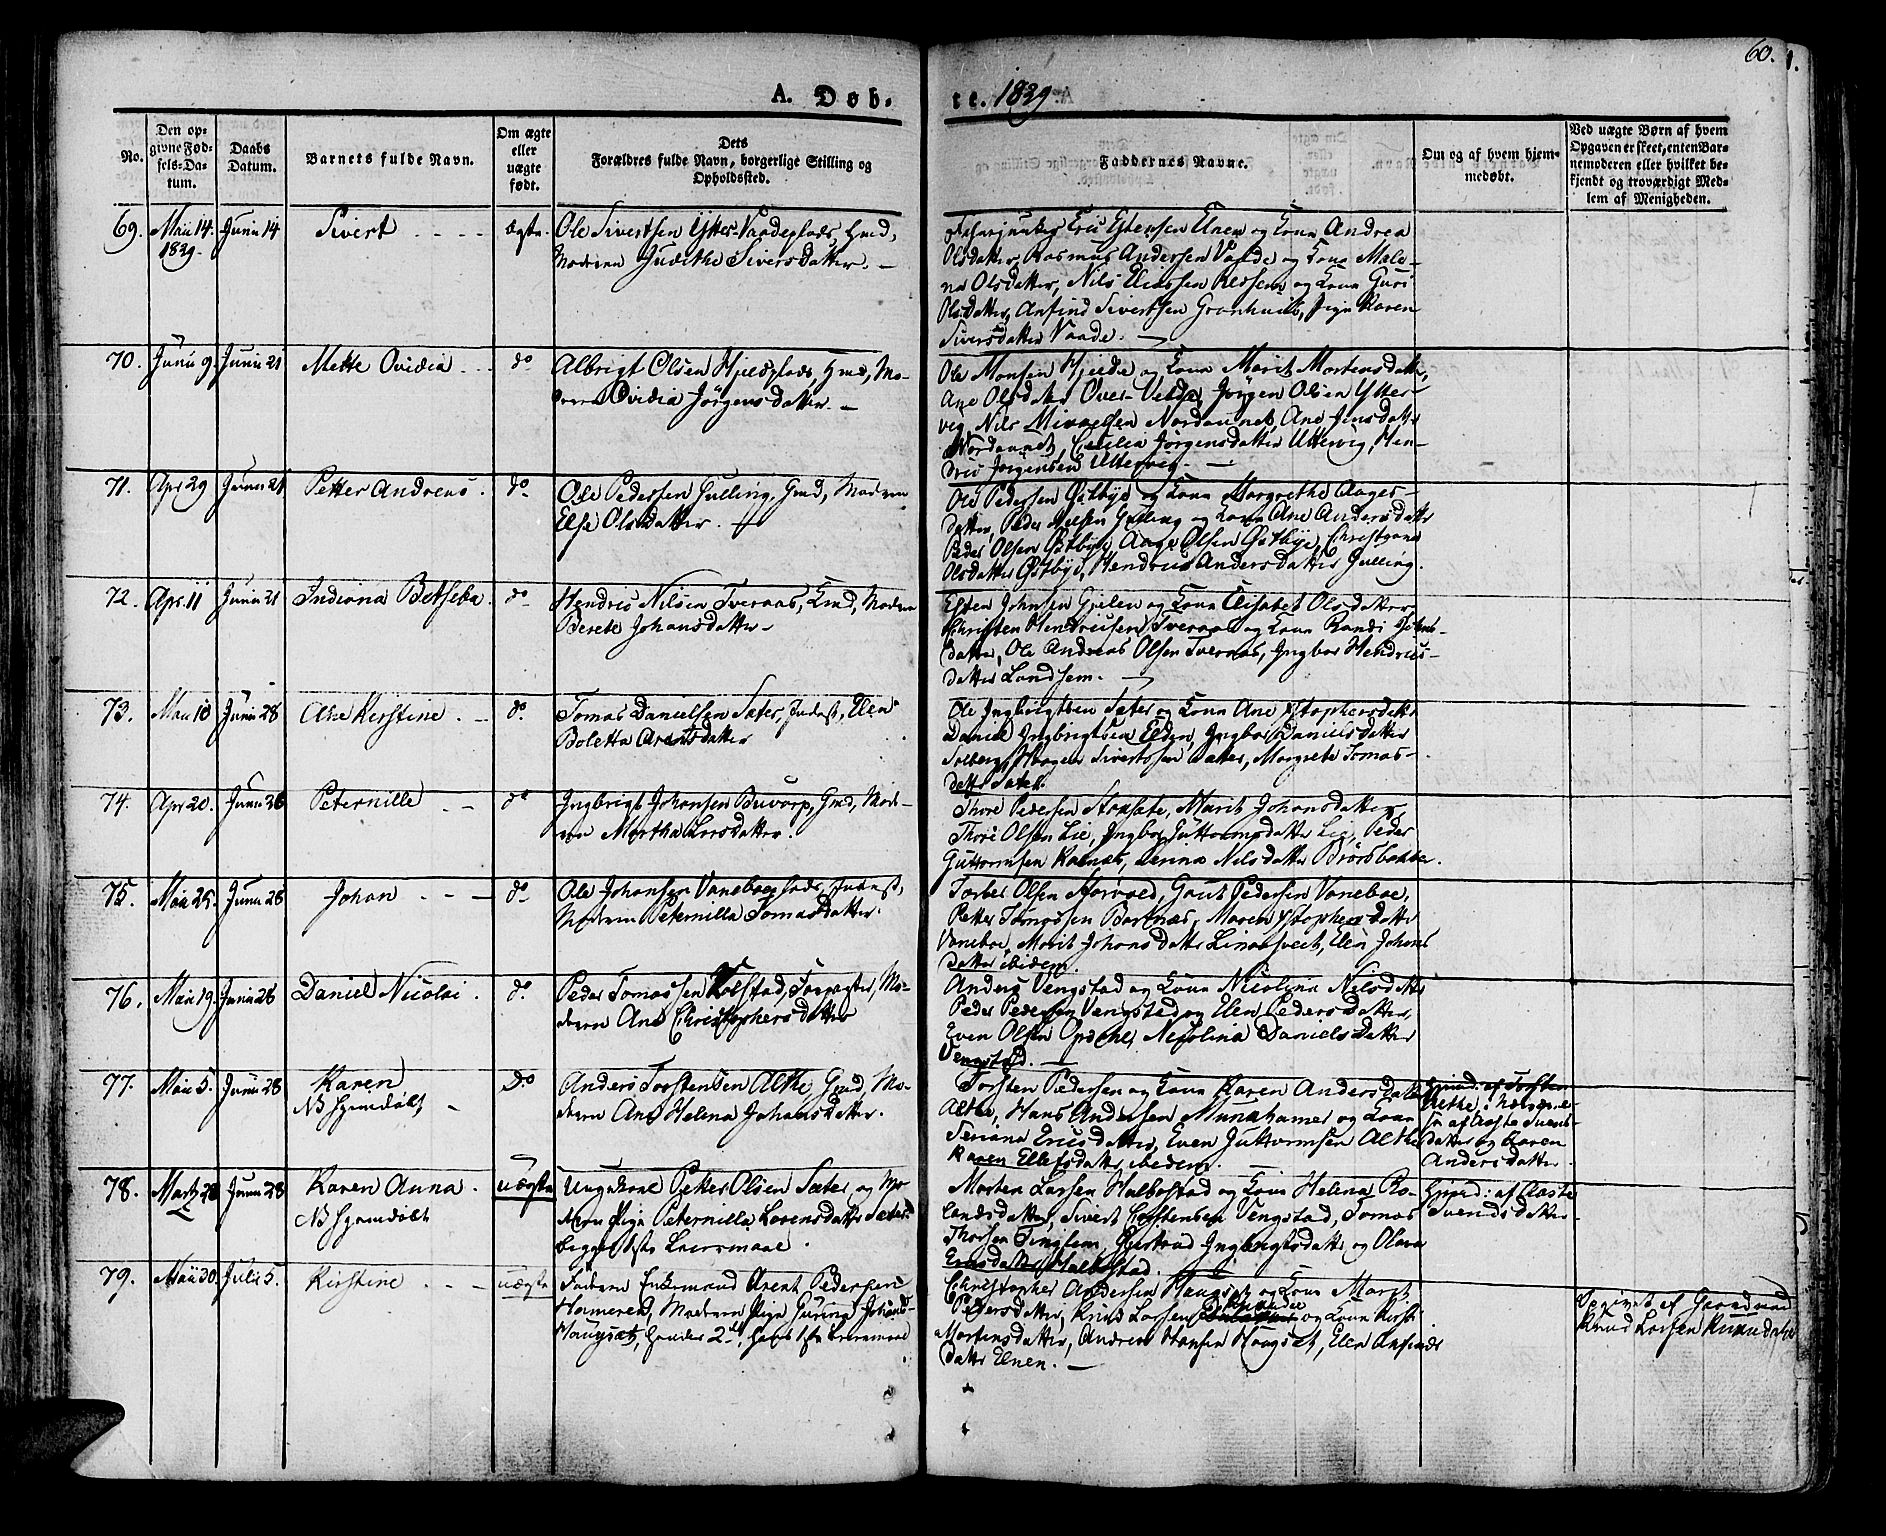 60.
A. Døb-
te. 1829
No.
Den op-
givne Fød-
sels-Da-
tum.
Daabs
Datum.
Barnets fulde Navn.
Om ægte
eller
uægte
født.
Dets
Forældres fulde Navn, borgerlige Stilling og
Opholdssted.
Faddernes Navne.
Om og af hvem hjem-
medøbt.
Ved uægte Børn af hvem
Opgaven er skeet, enten Bar-
nemoderen eller hvilket be-
kjendt og troværdigt Med-
lem af Menigheden.
69. Mai 14. 1829. Junii 14 Sivert ægte.
Ole Sivertsen Ytter-Vaadeplads, Hmd,
Moderen Judithe Siversdatter.
Eric Estensen Elnen og Kona Andrea
Olsdatter, Rasmus Andersen Vaade og Kona Male-
na Olsdatter, Nils Eliassen Ressem og Kona Guri
Olsdatter, Anfind Sivertsen Pige Karen
Siversdatter Vaade.
70. Junii 9. Junii 21 Mette Ovidia do
Albrigt Olsen Hjeldeplads Hmd, Mo-
deren Ovidia Jörgensdatter.
Ole Monsen Hjelde og Kona Marit Mortensdatter,
Ane Olsdatter Over-Velde, Jörgen Olsen Ytter-
vig, Nils Nordaunet, Ane Jensdatter
Nordaunet, Cecilia Jörgensdatter Uttervig, Hen-
dric Jörgensen Uttervig.
71. Apr 29 Junii 21 Petter Andreas. do
Ole Pedersen Gulling, Gmd, Moderen
Else Olsdatter.
Ole Pedersen Östbye og Kona Margrethe Aages-
datter, Peder Nilsen Gulling og Kona Ane Andersdatter
Peder Olsen Östbye, Aage Olsen Östbye, Christiana
Olsdatter Östbye, Hendrica Andersdatter Gulling.
72. Apr. 11 Junii 21 Indiana Betseba. do
Hendric Nilsen Tveraas, Gmd, Moderen
Berete Johansdatter
Esten Johnsen og Kona Elisabet Olsdatter,
Christen Hendricsen Tveraas og Kona Randi Johns-
datter, Ole Andreas Olsen Tveraas, Ingbor Hendrics-
datter Landsem.
73. Mai 10 Junii 28 Ane Kirstine. do
Tomas Danielsen Sæter, Inderst, Elen
Boletta Arentsdatter
Ole Ingbrigtsen Sæter og Kona Ane Xstophersdatter
Daniel Ingbrigtsen Elden, Ingbor Danielsdatter
Solberg, Haagen Sivertssen Sæter, Margrete Tomas-
datter Sæter.
74. Apr 20. Junii 28 Peternille do
Ingbrigt Johansen Buvarp, Gmd, Mod-
eren Martha Larsdatter.
Thore Pedersen Marit Johansdatter,
Thore Olsen Lie, Ingbor Guttormsdatter Lie, Peder
Guttormsen Nilsdatter
75. Mai 25. Junii 28 Johan do
Ole Johansen Vaneboeplads, Inderst,
Moderen Peternilla Tomasdatter.
Torber Olsen Storvold, Gaut Pedersen Vaneboe,
Petter Tomassen Bartnæs, Maren Xstophersdatter
Vaneboe, Marit Johansdatter Elen Johans
datter ibidem.
76. Mai 19. Junii 28 Daniel Nicolai. do
Peder Tomassen Kolstad, Forpagter, Mo-
deren Ane Christophersdatter
Anders Vengstad og Kona Nicolina Nilsdatter
Peder Pedersen Vengstad og Elen Pedersdatter,
Even Olsen Nicolina Danielsdatter
Vengstad.
77. Mai 5. Junii 28 Karen
NB hjemdöbt
Do
Anders Torstensen Althe, Gmd, Mo-
deren Ane Helena Johansdatter.
Torsten Pedersen og Kona Karen Andersdatter
Althe, Hans Andersen Munkhamer og Kona
Seriana Ericsdatter, Even Guttormsen Althe
Karen Ellefsdatter ibidem.
Hjemd: af Torsten
Aelthe i nærværel-
se af Aaste Svends-
datter og Karen
Andersdatter.
78. Marts 28 Junii 28 Karen Anna.
NB hjemdöbt
uægte
Ungskarl Petter Olsen Sæter og Mo-
deren Pige Peternilla Larensdatter Sæter.
begges 1ste Leiermaal.
Morten Larsen Halbostad og Kona Helena Ro-
landsdatter, Sivert Carstensen Vengstad, Tomas
Thorsen Tinglem, Gjertrud Ingbrigtsdatter og Olava
Ericsdatter Halbostad.
Hjemd: af Aaste
Svendsdatter
79. Mai 30. Julii 5. Kirstine uægte
Faderen Enkemand Arent Pedersen
Hammeren, Moderen Pige Guring Johans
Haugsæt, hendes 2det, hans 1ste Leiermaal
Christopher Andersen Haugsæt og Kona Marit
Pedersdatter, Knud Larsen og Kona Kirsti
Mortensdatter, Andreas Hansen Haugsæt, Elen Anfinds
datter Elnen.
Opgivet af Gaardmand
Knud Larsen